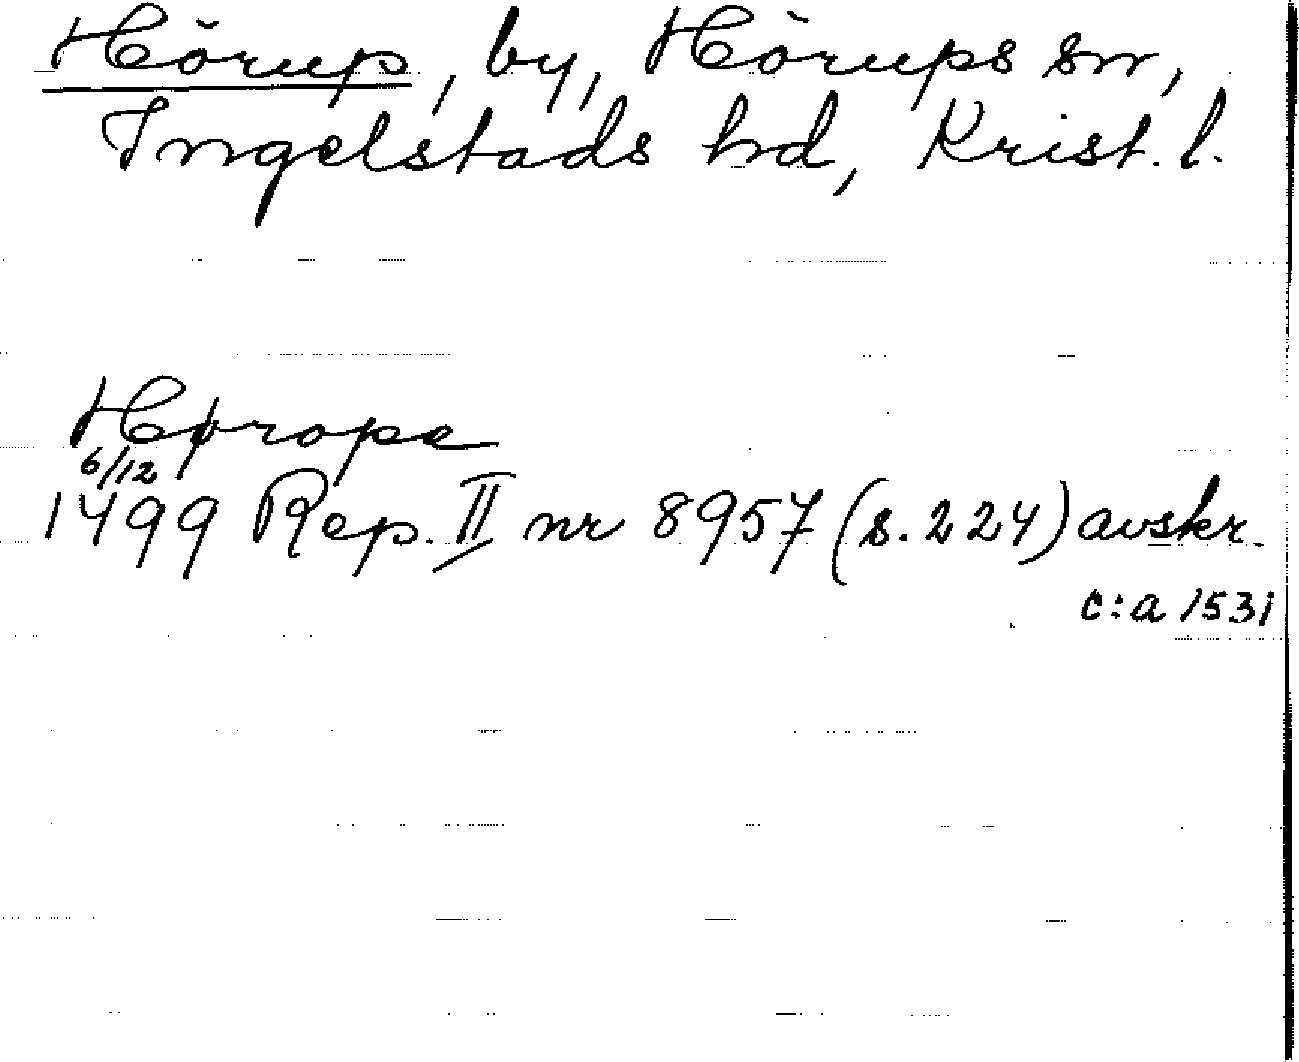 Hörup, by, Hörups sn,
Ingelstads hd, Krist. l.
Hørope
6/12
1499 Rep. II nr 8957 (s. 224) avskr.
c:a 1531